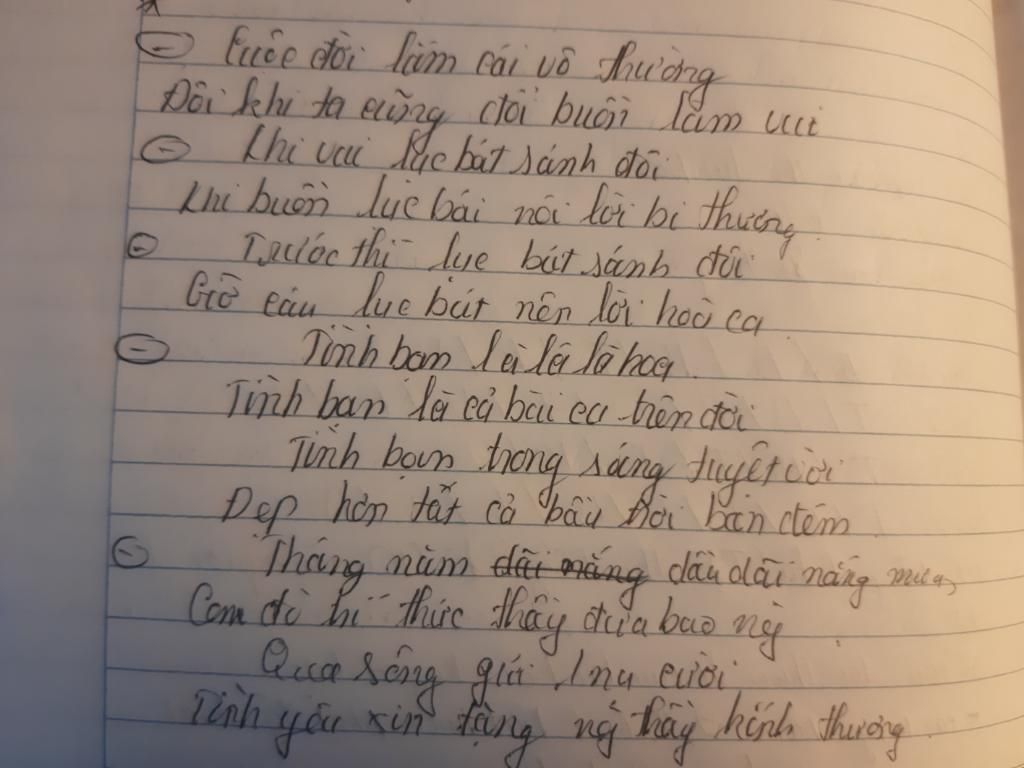 Cuộc đời lắm cái vô thường
Đôi khi ta cũng đổi buồn làm vui
Khi vui lục bát sánh đôi
Khi buồn lục bát nói lời bi thương
Trước thì lục bát sánh đôi
Giờ câu lục bát nên lời hoà ca
Tình bạn là lá là hoa
Tình bạn là cả bài ca trên đời
Tình bạn trong sáng tuyệt vời
Đẹp hơn tất cả bầu trời ban đêm
Tháng năm dãi nắng dầu dãi nắng mưa,
Con đò tri thức thầy đưa bao ng
Qua sông gửi lại nụ cười
Tình yêu xin tặng ng thầy kính thương